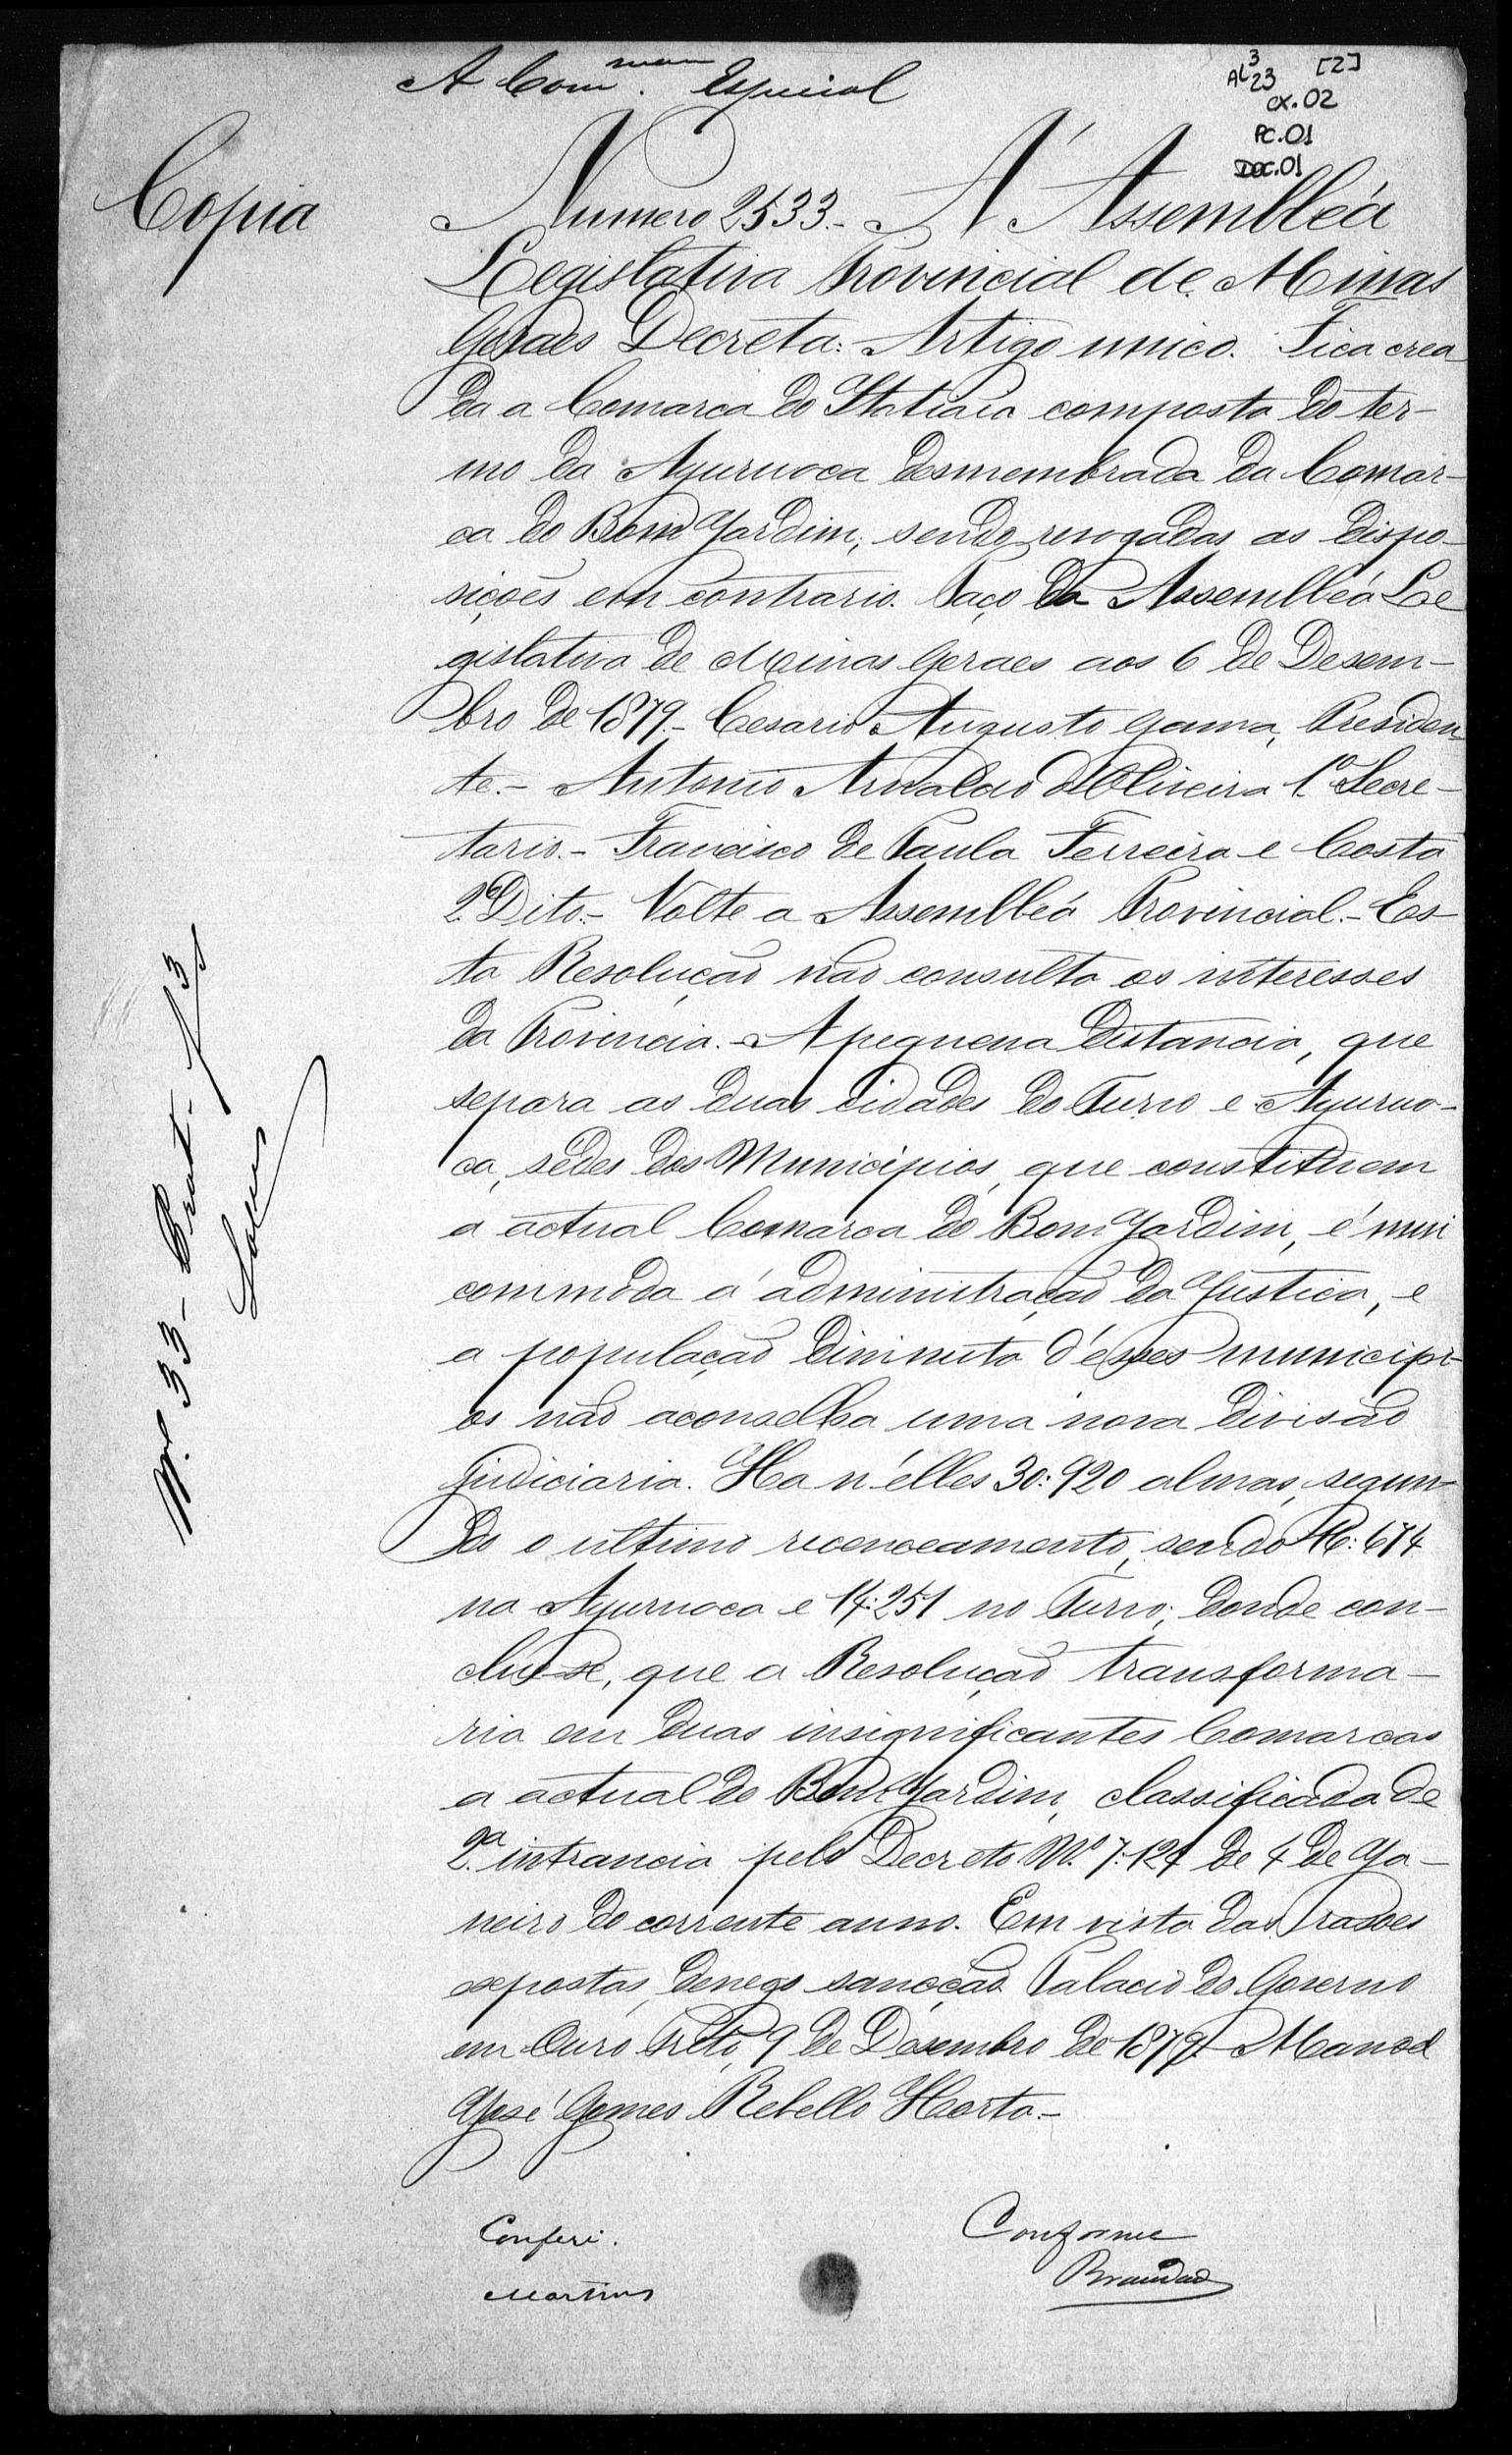 A Com.mam Especial
AL 3 23 [2]
CX.02
PC.01
DOC.01
Copia
Numero 2533.- A' Assembléa
Legislativa Provincial de Minas
Geraes Decreta: Artigo unico. Fica crea
da a Comarca do Itatiaia composta do ter-
mo da Ayuruoca desmembrada da Comar-
ca do Bom Jardim, sendo revogadas as dispo-
sições em contrario. Paço da Assembléa Le
gislativa de Minas Geraes aos 6 de Desem-
bro de 1879.- Cesario Augusto Gama, Presiden
te.- Antonio Arnaldo d'Oliveira 1º Secre-
tario.- Francisco de Paula Ferreira e Costa
2º Dito.- Volte a Assembléa Provincial.- Es-
ta Resolução não consulta os interesses
da Provincia.- A pequena distancia, que
separa as duas cidades do Turvo e Ayuruo-
ca, sédes dos Municipios, que constituem
a actual Comarca do Bom Jardim, é mui
commoda á administração da Justica, e
a população diminuta d'esses municipi-
os não aconselha uma nova divisão
judiciaria. Ha n'elles 30:920 almas, segun
do o ultimo recenceamento, sendo 16:674
na Ayuruoca e 14:251 no Turvo; donde con-
clue-se, que a Resolução transforma-
ria em duas insignificantes Comarcas
a actual do Bom Jardim, classificada de
2.ª intrancia pelo Decreto Nº 7:124 de 4 de Ja-
neiro do corrente anno. Em vista das rasões
expostas, denego sancção. Palacio do Governo
em Ouro Preto, 9 de Desembro de 1879.- Manoel
José Gomes Rebello Horta.-
Conferi.
Martins
Conforme
Brandão
Nº 33-